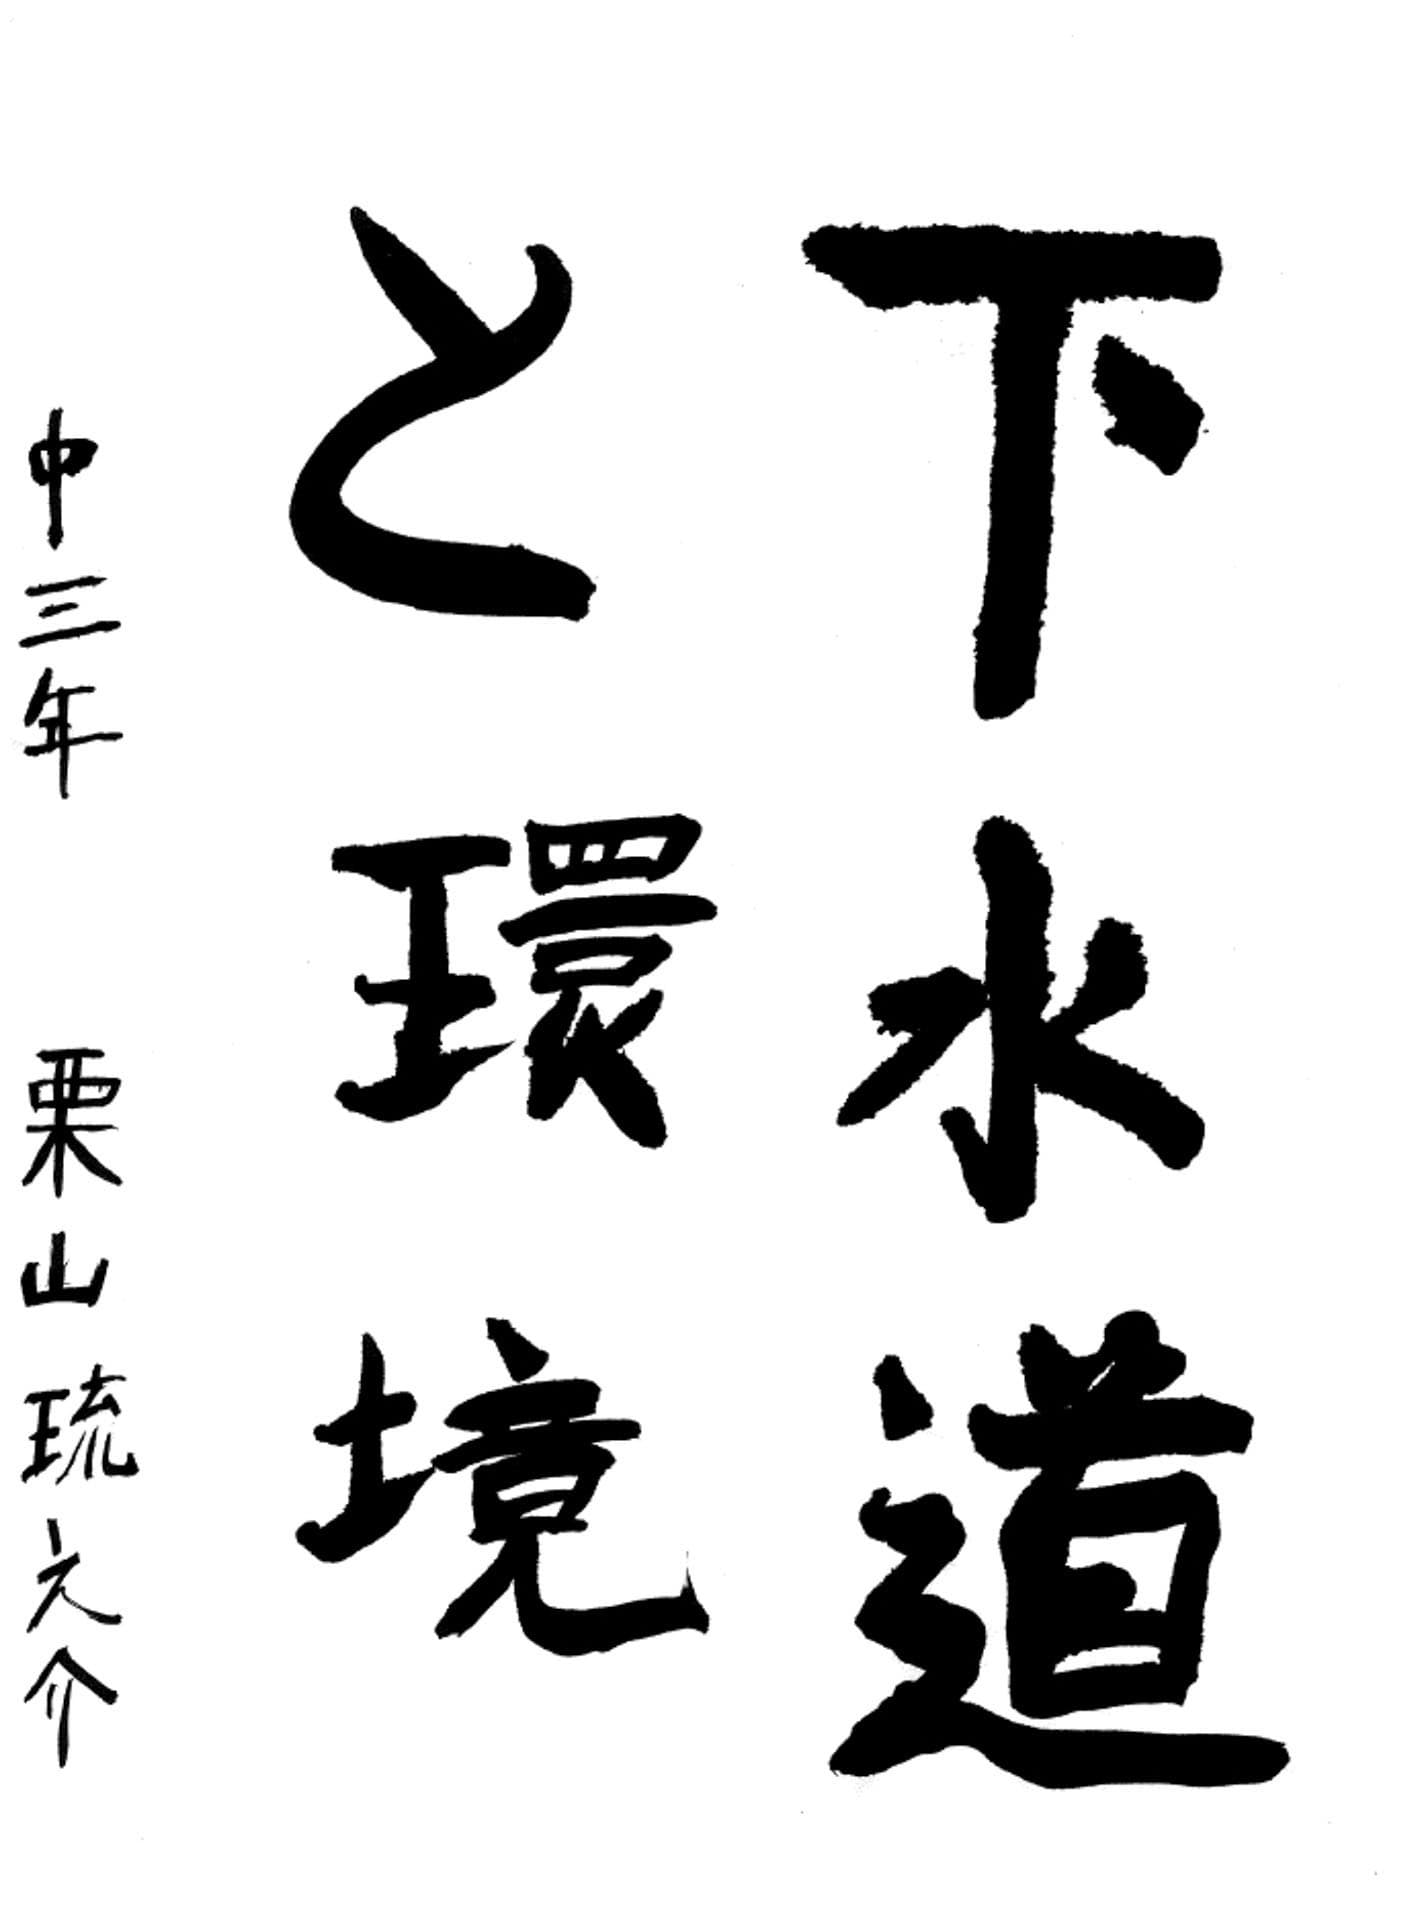 下水道
と環境
中三年 栗山琉元介